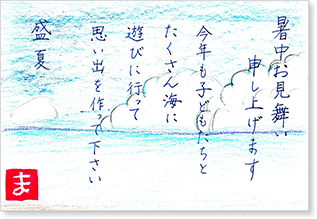 暑中お見舞い
申し上げます
今年も子どもたちと
たくさん海に
遊びに行って
思い出を作って下さい
盛夏
ま